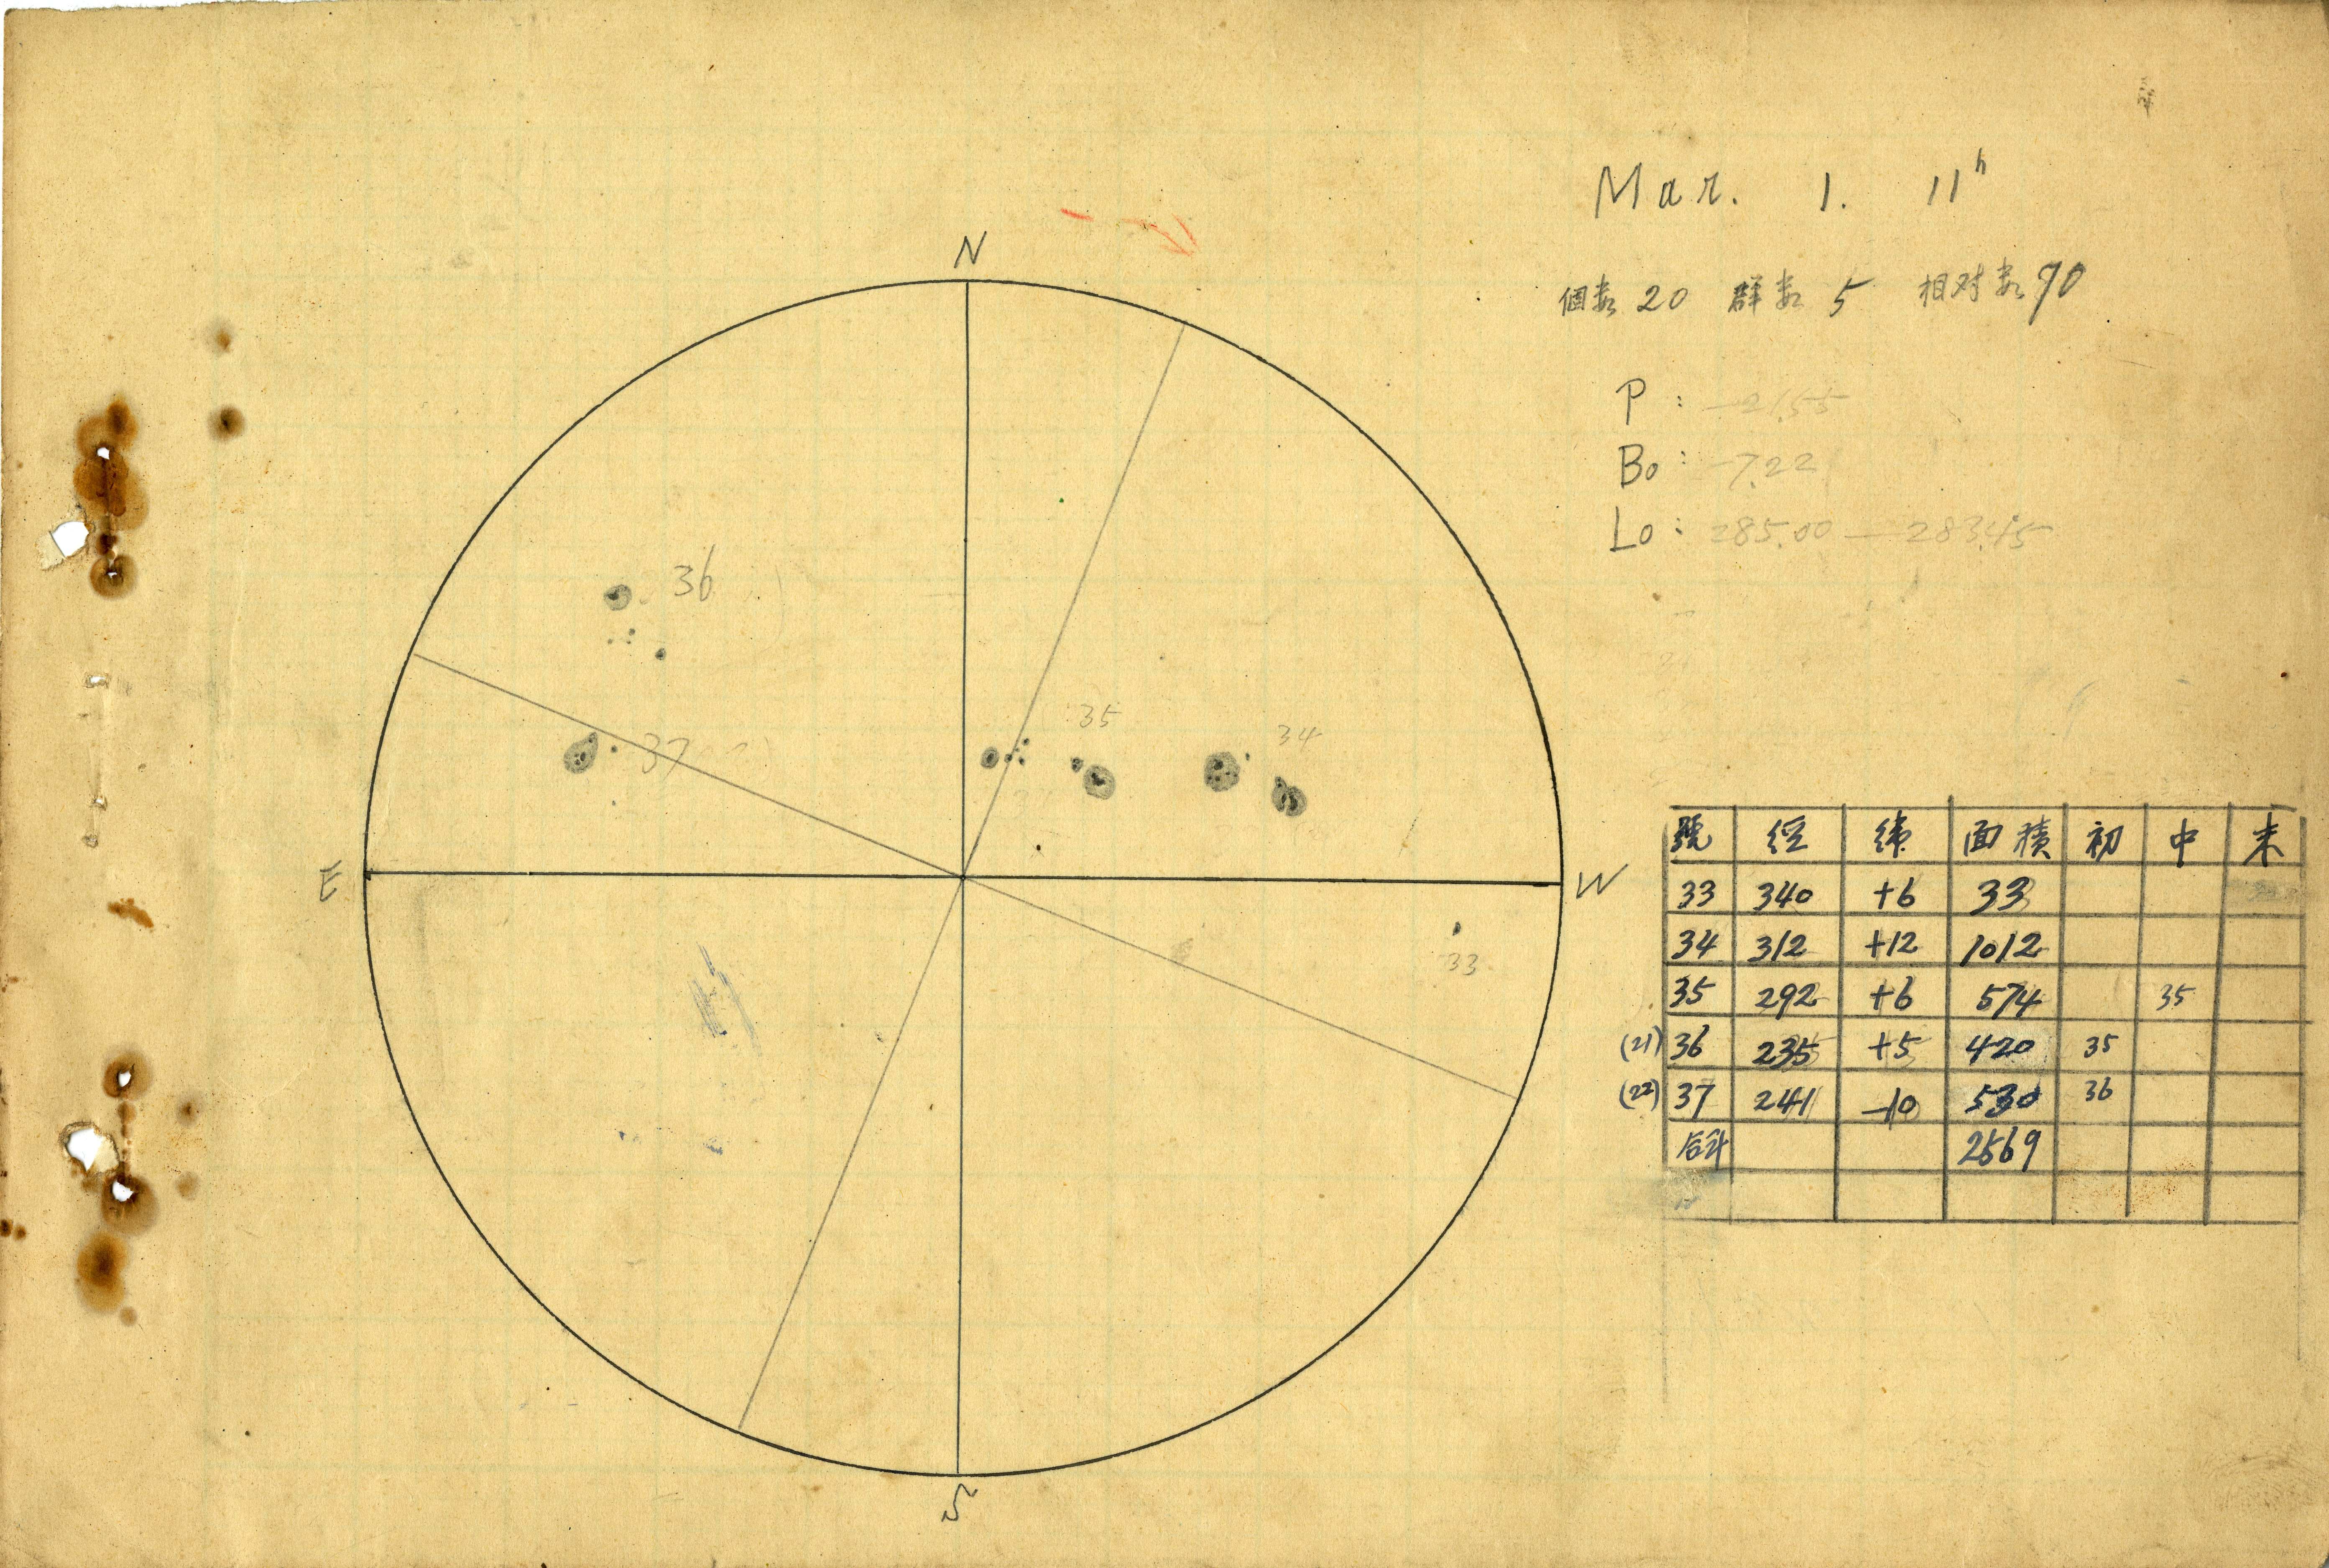 Mar. 1. 11h
個数 20 群数 5 相对数 70
P : -21.55
Bo : -7.22
Lo : 285.00 — 283.45
N
36
35
34
37
E
W
33
S
號 経 緯 面積 初 中 末
33 340 +6 33
34 312 +12 1012
35 292 +6 574 35
(21) 36 235 +5 420 35
(22) 37 241 -10 530 36
合计 2569